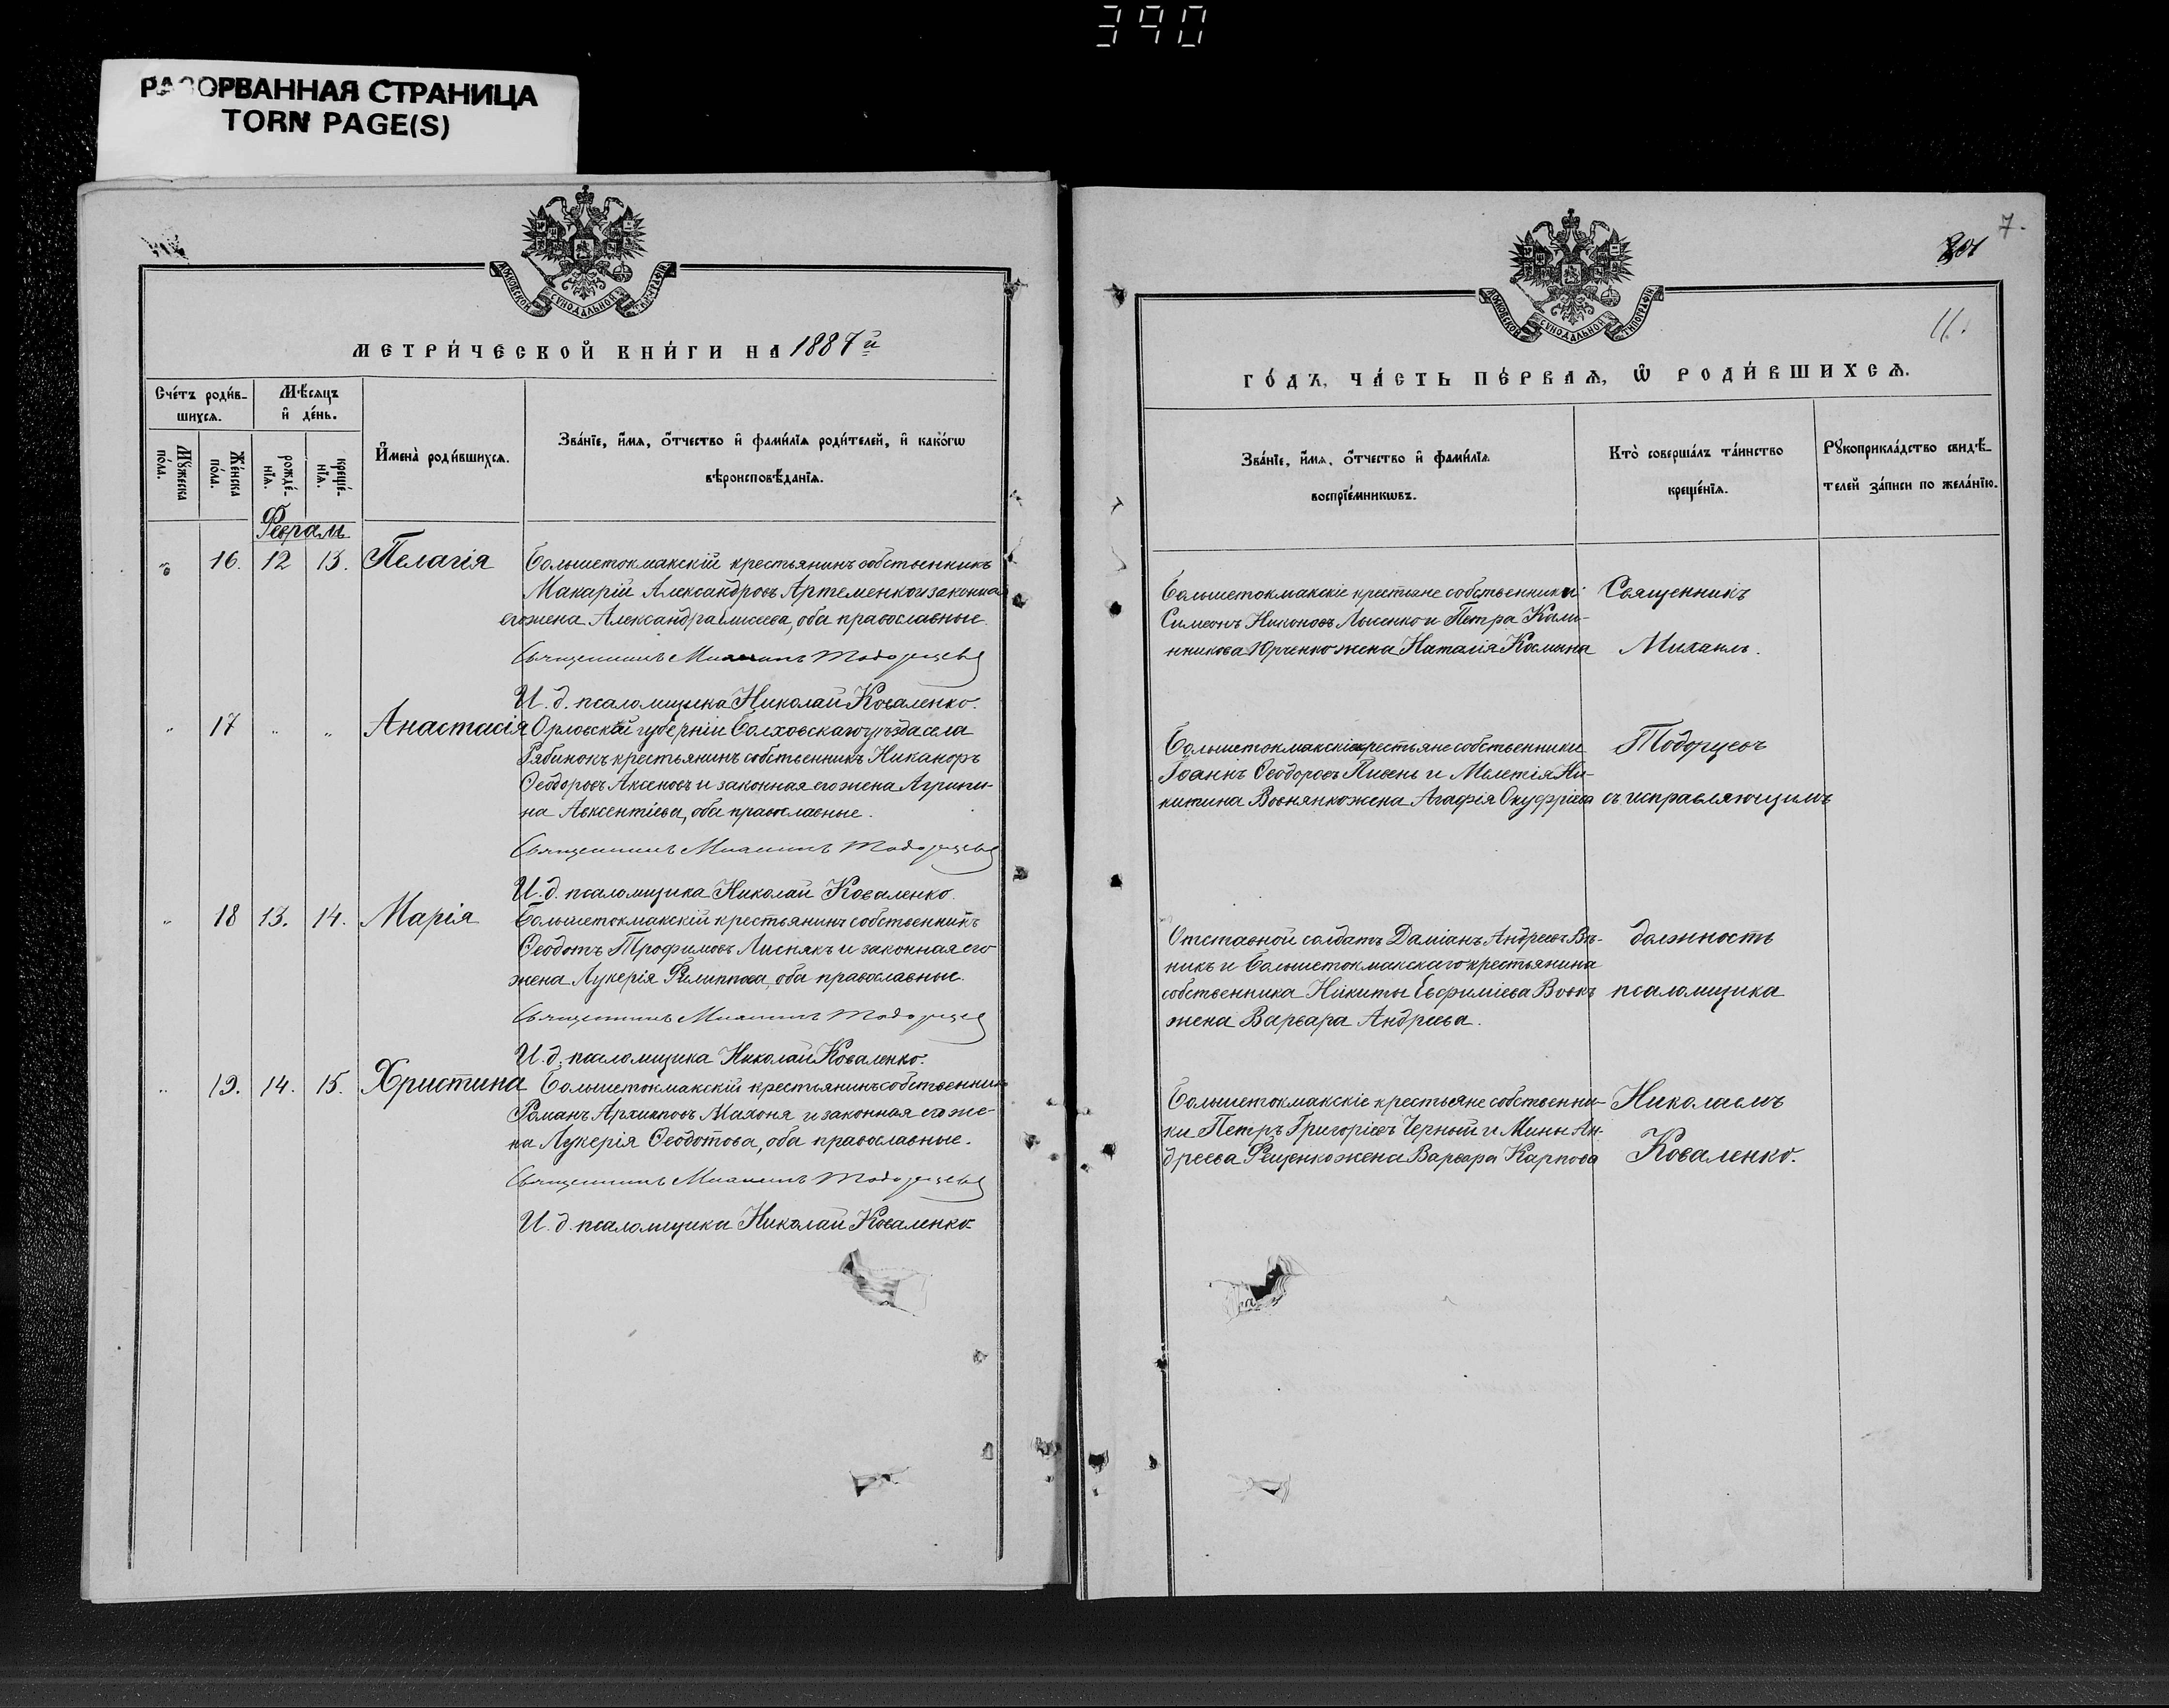 390
РАЗОРВАННАЯ СТРАНИЦА
TORN PAGE(S)
МОСКОВСКОЙ СѴНОДАЛЬНОЙ ТИПОГРАФІИ
МЕТРИ́ЧЕСКОЙ КНИ́ГИ НА 1887 й
Сче́тъ роди́в-
шихсѧ.
Мѣ́сѧцъ
и҆ де́нь.
Мꙋ́жеска по́ла.
Же́нска по́ла.
рожде́-нїѧ.
креще́-нїѧ.
И҆мена̀ роди́вшихсѧ.
Зва́нїе, и҆́мѧ, ѻ҆́тчество и҆ фами́лїѧ роди́телей, и҆ како́гѡ
вѣроисповѣ́данїѧ.
Февраль
16. 12 13. Пелагія
Большетокмакскій крестьянинъ собственникъ
Макарій Александровъ Артеменко и законная
его жена Александра Елисеева, оба православные.
Священникъ Михаилъ Тодорцевъ
И. д. псаломщика Николай Коваленко.
" 17 " " Анастасія
Орловской губерніи Болховскаго уѣзда села
Рябинокъ крестьянинъ собственникъ Никаноръ
Ѳеодоровъ Аксеновъ и законная его жена Агрипи-
на Авксентіева, оба православные.
Священникъ Михаилъ Тодорцевъ
И. д. псаломщика Николай Коваленко.
" 18 13. 14. Марія
Большетокмакскій крестьянинъ собственникъ
Ѳеодотъ Трофимовъ Лиснякъ и законная его
жена Лукерія Филиппова, оба православные.
Священникъ Михаилъ Тодорцевъ
И. д. псаломщика Николай Коваленко.
" 19. 14. 15. Христина
Большетокмакскій крестьянинъ собственникъ
Романъ Архиповъ Махоня и законная его же-
на Лукерія Ѳеодотова, оба православные.
Священникъ Михаилъ Тодорцевъ
И. д. псаломщика Николай Коваленко.
7.
11.
МОСКОВСКОЙ СѴНОДАЛЬНОЙ ТИПОГРАФІИ
ГО́ДЪ, ЧА́СТЬ ПЕ́РВАѦ, Ѡ҆ РОДИ́ВШИХСѦ.
Зва́нїе, и҆́мѧ, ѻ҆́тчество и҆ фами́лїѧ
воспрїе́мникѡвъ.
Кто̀ соверша́лъ та́инство
креще́нїѧ.
Рꙋкоприкла́дство свидѣ́-
телей за́писи по жела́нїю.
Большетокмакскіе крестьяне собственники:
Симеонъ Никоновъ Лысенко и Петра Кали-
нникова Юрченко жена Наталія Космина
Священникъ
Михаилъ.
Большетокмакскіе крестьяне собственники
Іоаннъ Ѳеодоровъ Пивень и Мелетія Ни-
китина Вовнянко жена Агафія Онуфріева
Тодорцевъ
съ исправляющимъ
Отставной солдатъ Даміанъ Андреевъ Вѣ-
никъ и Большетокмакскаго крестьянина
собственника Никиты Евфиміева Вовкъ
жена Варвара Андреева.
должность
псаломщика
Большетокмакскіе крестьяне собственни-
ки Петръ Григоріевъ Черный и Мины Ан-
дреева Фещенко жена Варвара Карпова
Николаемъ
Коваленко.